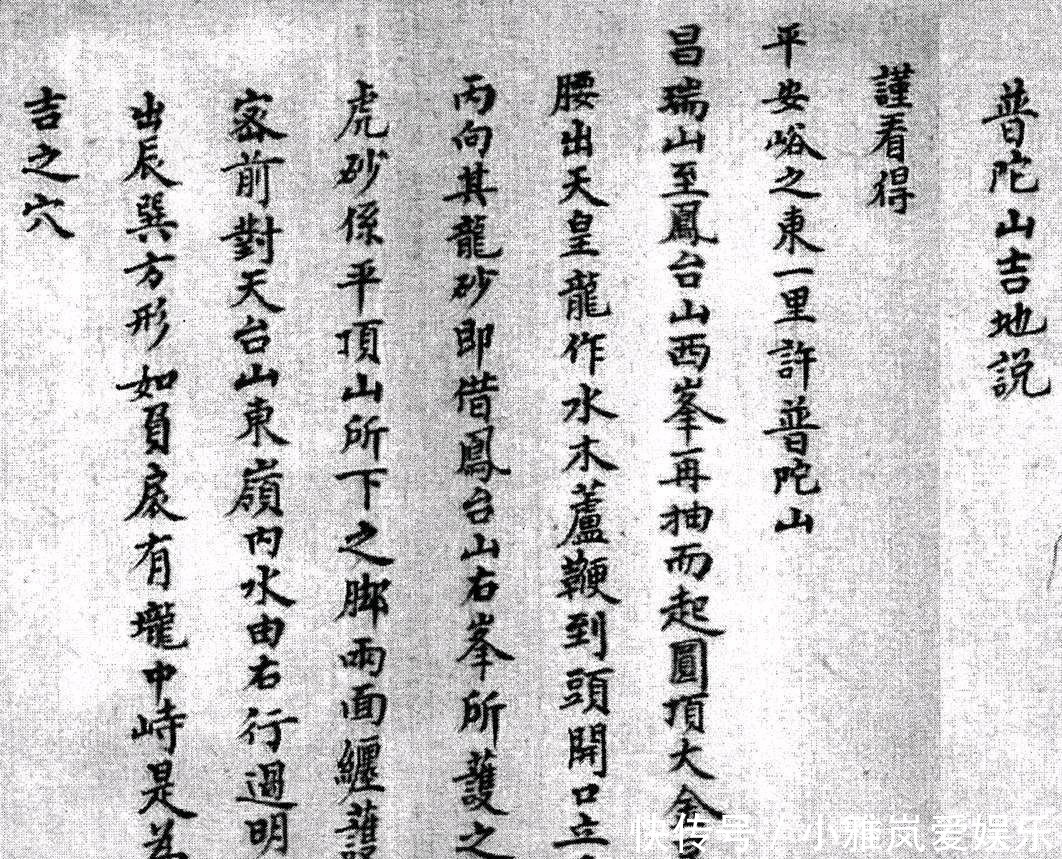 普陀山吉地説
謹看得
平安峪之東一里許普陀山
昌瑞山至鳳台山西峯再抽而起圓頂大金
腰出天皇龍作水木蘆鞭到頭開口立
丙向其龍砂即借鳳台山右峯所護之
虎砂係平頂山所下之脚兩面纒護
宻前對天台山東嶺内水由右行過明
出辰巽方形如負扆有壠中峙是为
吉之穴
快传号/小雅岚爱娱乐